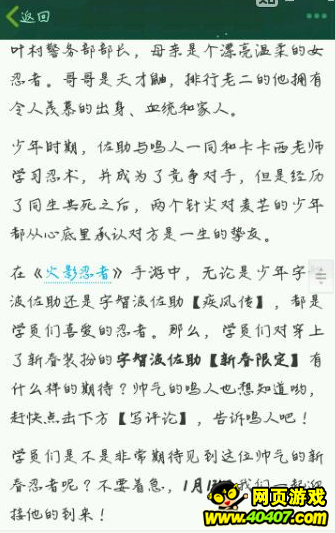 返回
叶村警务部部长，母亲是个漂亮温柔的女
忍者。哥哥是天才鼬，排行老二的他拥有
令人羡慕的出身、血统和家人。
少年时期，佐助与鸣人一同和卡卡西老师
学习忍术，并成为了竞争对手，但是经历
了同生共死之后，两个针尖对麦芒的少年
都从心底里承认对方是一生的挚友。
在《火影忍者》手游中，无论是少年宇智
波佐助还是宇智波佐助【疾风传】，都是
学员们喜爱的忍者。那么，学员们对穿上
了新春装扮的宇智波佐助【新春限定】有
什么样的期待？帅气的鸣人也想知道哟，
赶快点击下方【写评论】，告诉鸣人吧！
学员们是不是非常期待见到这位帅气的新
春忍者呢？不要着急，1月1 我们一起迎
接他的到来！
网页游戏
www.40407.com